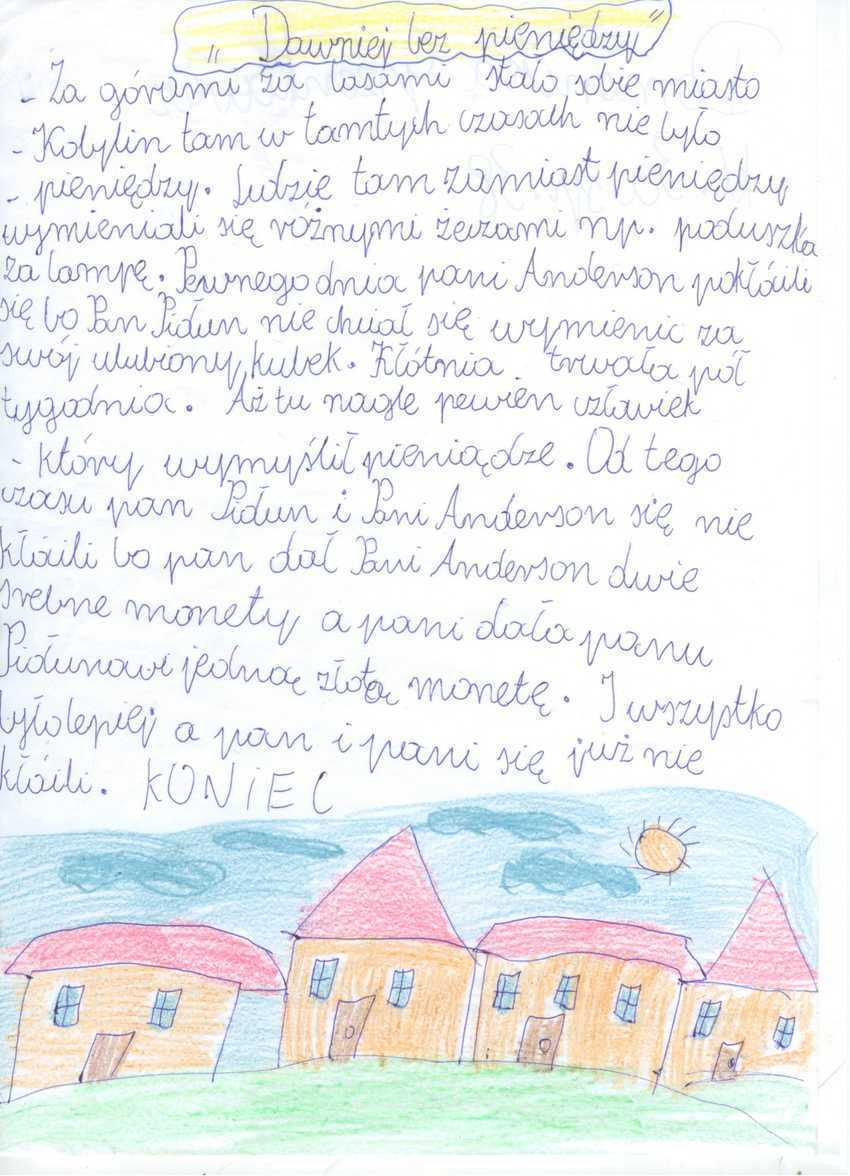 „Dawniej bez pieniędzy"
- Za górami za lasami stało sobie miasto
- Kobylin tam w tamtych czasach nie było
- pieniędzy. Ludzie tam zamiast pieniędzy
wymieniali się różnymi żeczami np. poduszka
za lampę. Pewnego dnia pani Anderson pokłócili
się bo Pan Pidun nie chciał się wymienic za
swój ulubiony kubek. Kłótnia trwała pół
tygodnia. Aż tu nagle pewien człowiek
- który wymyślił pieniądze. Od tego
czasu pan Pidun i Pani Anderson się nie
kłócili bo pan dał Pani Anderson dwie
srebne monety a pani dała panu
Pidunowi jedną złotą monetę. I wszystko
było lepiej a pan i pani się już nie
kłócili. KONIEC